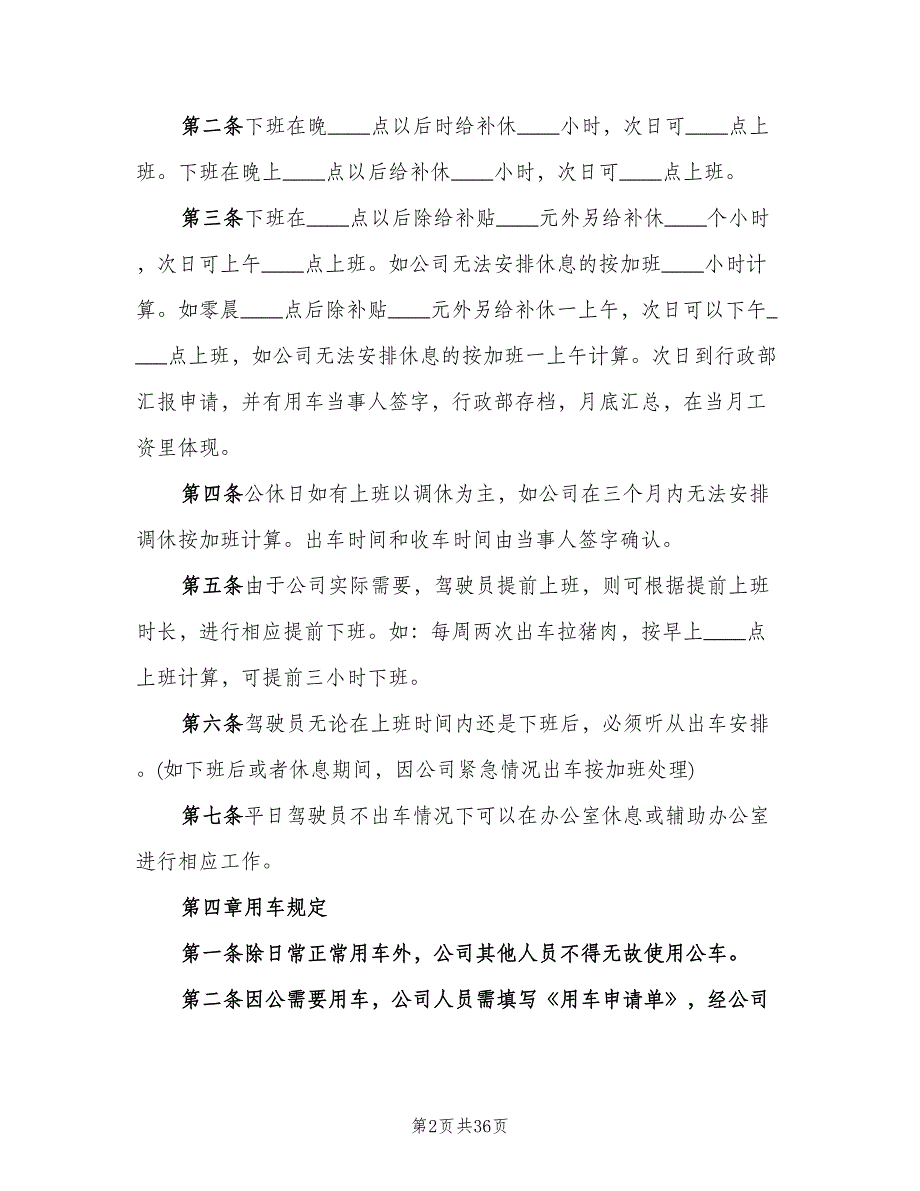 第二条下班在晚____点以后时给补休____小时，次日可____点上
班。下班在晚上____点以后给补休____小时，次日可____点上班。
第三条下班在____点以后除给补贴____元外另给补休____个小时
，次日可上午____点上班。如公司无法安排休息的按加班____小时计
算。如零晨____点后除补贴____元外另给补休一上午，次日可以下午_
___点上班，如公司无法安排休息的按加班一上午计算。次日到行政部
汇报申请，并有用车当事人签字，行政部存档，月底汇总，在当月工
资里体现。
第四条公休日如有上班以调休为主，如公司在三个月内无法安排
调休按加班计算。出车时间和收车时间由当事人签字确认。
第五条由于公司实际需要，驾驶员提前上班，则可根据提前上班
时长，进行相应提前下班。如：每周两次出车拉猪肉，按早上____点
上班计算，可提前三小时下班。
第六条驾驶员无论在上班时间内还是下班后，必须听从出车安排
。(如下班后或者休息期间，因公司紧急情况出车按加班处理)
第七条平日驾驶员不出车情况下可以在办公室休息或辅助办公室
进行相应工作。
第四章用车规定
第一条除日常正常用车外，公司其他人员不得无故使用公车。
第二条因公需要用车，公司人员需填写《用车申请单》，经公司
第2页共36页